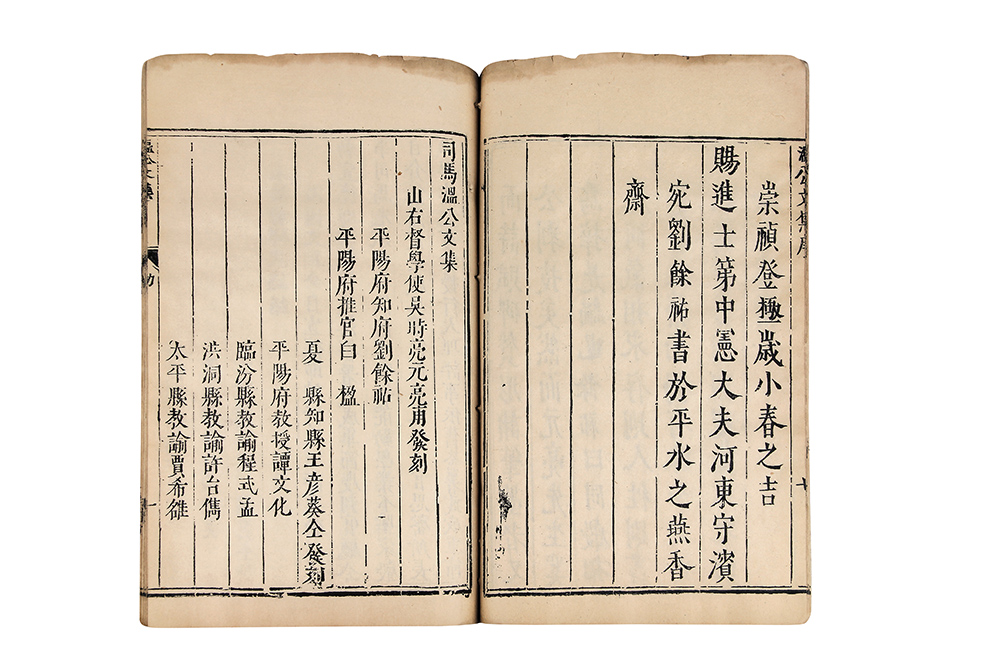 溫公文集序
七
崇禎登極歲小春之吉
賜進士第中憲大夫河東守濱
宛劉餘祐書於平水之燕香
齋
司馬溫公文集
山右督學使吳時亮元亮甫發刻
平陽府知府劉餘祐
平陽府推官白 楹
夏 縣知縣王彥葵仝發刻
平陽府教授譚文化
臨汾縣教諭程式孟
洪洞縣教諭許台儁
太平縣教諭賈希雒
溫公文集
一